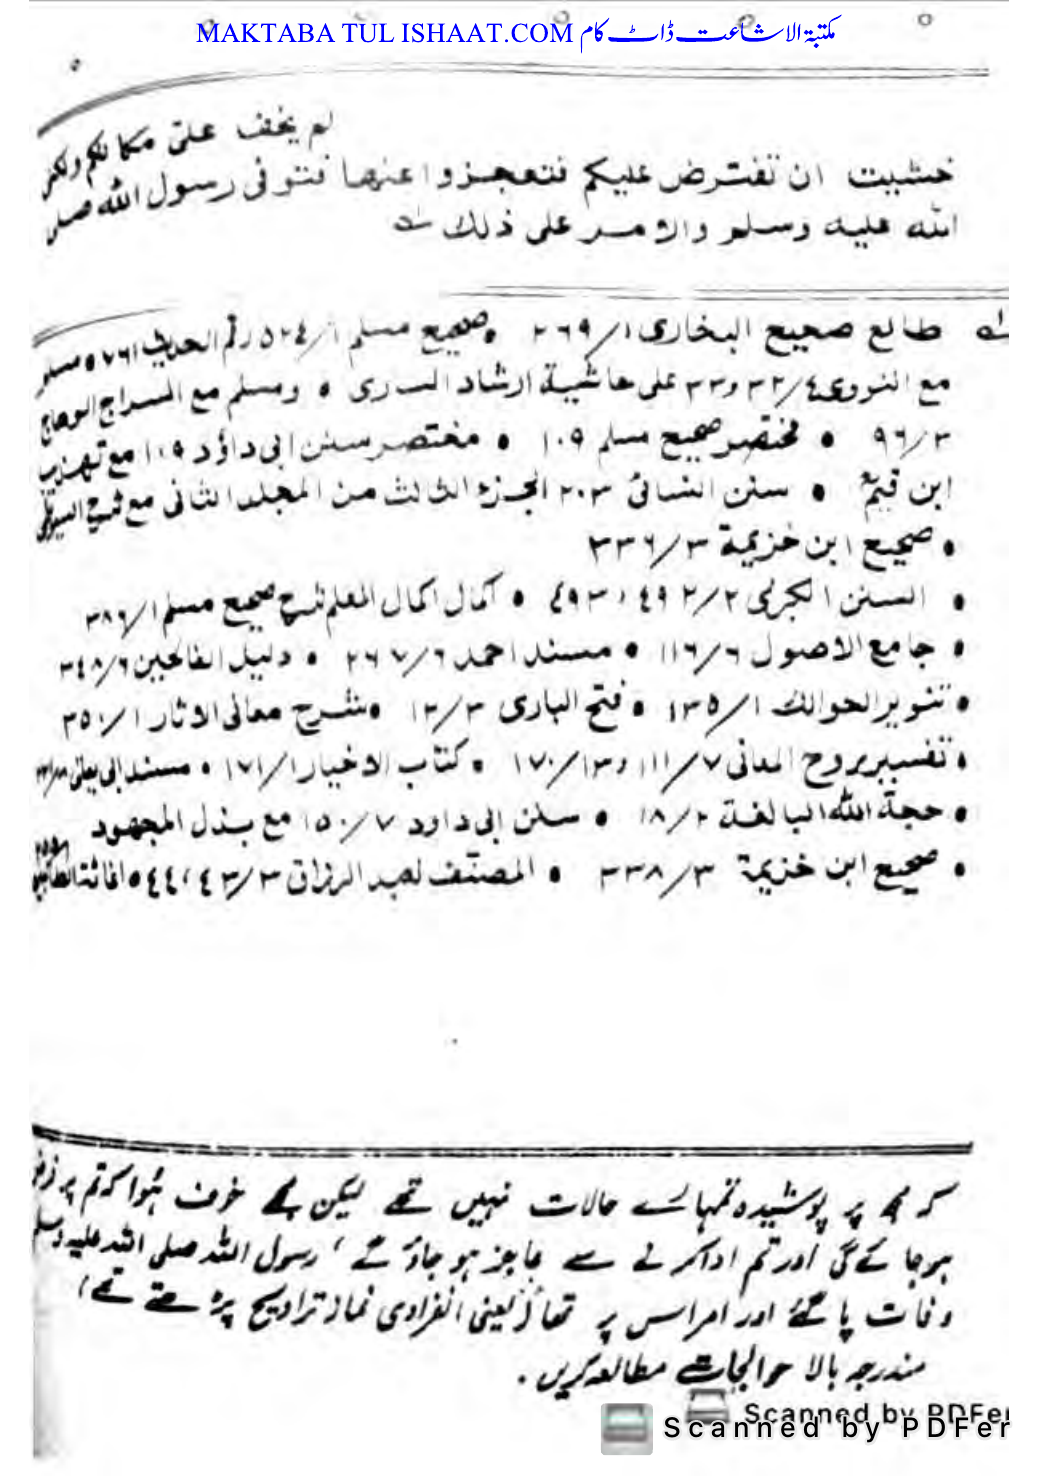 MAKTABA TUL ISHAAT.COM مکتبۃ الاشاعت ڈاٹ کام
لم یخف علیّ مکانکم ولکنی
خشیت ان تفترض علیکم فتعجزوا عنها فتوفی رسول الله صلی
الله علیه وسلم والامر على ذلك لـه
لـه طالع صحیح البخاری ۱/۲۶۹ • صحیح مسلم ۱/۵۲٤ رقم الحدیث ۷۶۱ • مسلم
مع النووی ٤/۳۲ و ۳۳ علی حاشیة ارشاد الساری • ومسلم مع السراج الوهاج
۳/۹۶ • مختصر صحیح مسلم ۱۰۹ • مختصر سنن ابی داؤد ۱۰۹ مع تهذیب
ابن قیم • سنن النسائی ۲۰۳ الجزء الثالث من المجلد الثانی مع شرح السیوطی
• صحیح ابن خزیمة ۳/۳۳۶
• السنن الکبری ۲/٤۹۲، ٤۹۳ • اکمال اکمال المعلم شرح صحیح مسلم ۱/۳۸۶
• جامع الاصول ۶/۱۱۶ • مسند احمد ۶/۲۶۷ • دلیل الفالحین ۶/۳٤۸
• تنویر الحوالك ۱/۱۳۵ • فتح الباری ۳/۱۳ • شرح معانی الاثار ۱/۳۵۰
• تفسیر روح المعانی ۷/۱۱۱ و ۱۳/۱۷۰ • کتاب الاخیار ۱/۱۷۱ • مسند ابی یعلی
• حجة الله البالغة ۲/۱۸ • سنن ابی داود ۷/۱۵۰ مع بذل المجهود
• صحیح ابن خزیمة ۳/۳۳۸ • المصنف لعبد الرزاق ۳/٤۳، ٤٤ •
کہ مجھ پر پوشیدہ تمہارے حالات نہیں تھے لیکن مجھے خوف ہُوا کہ تم پر فرض
ہو جائے گی اور تم ادا کرنے سے عاجز ہو جاؤ گے، رسول اللہ صلی اللہ علیہ وسلم
وفات پا گئے اور امر اسی پر تھا (یعنی انفرادی نماز تراویح پڑھتے تھے)
مندرجہ بالا حوالجات مطالعہ کریں۔
Scanned by PDFer
Scanned by PDFer